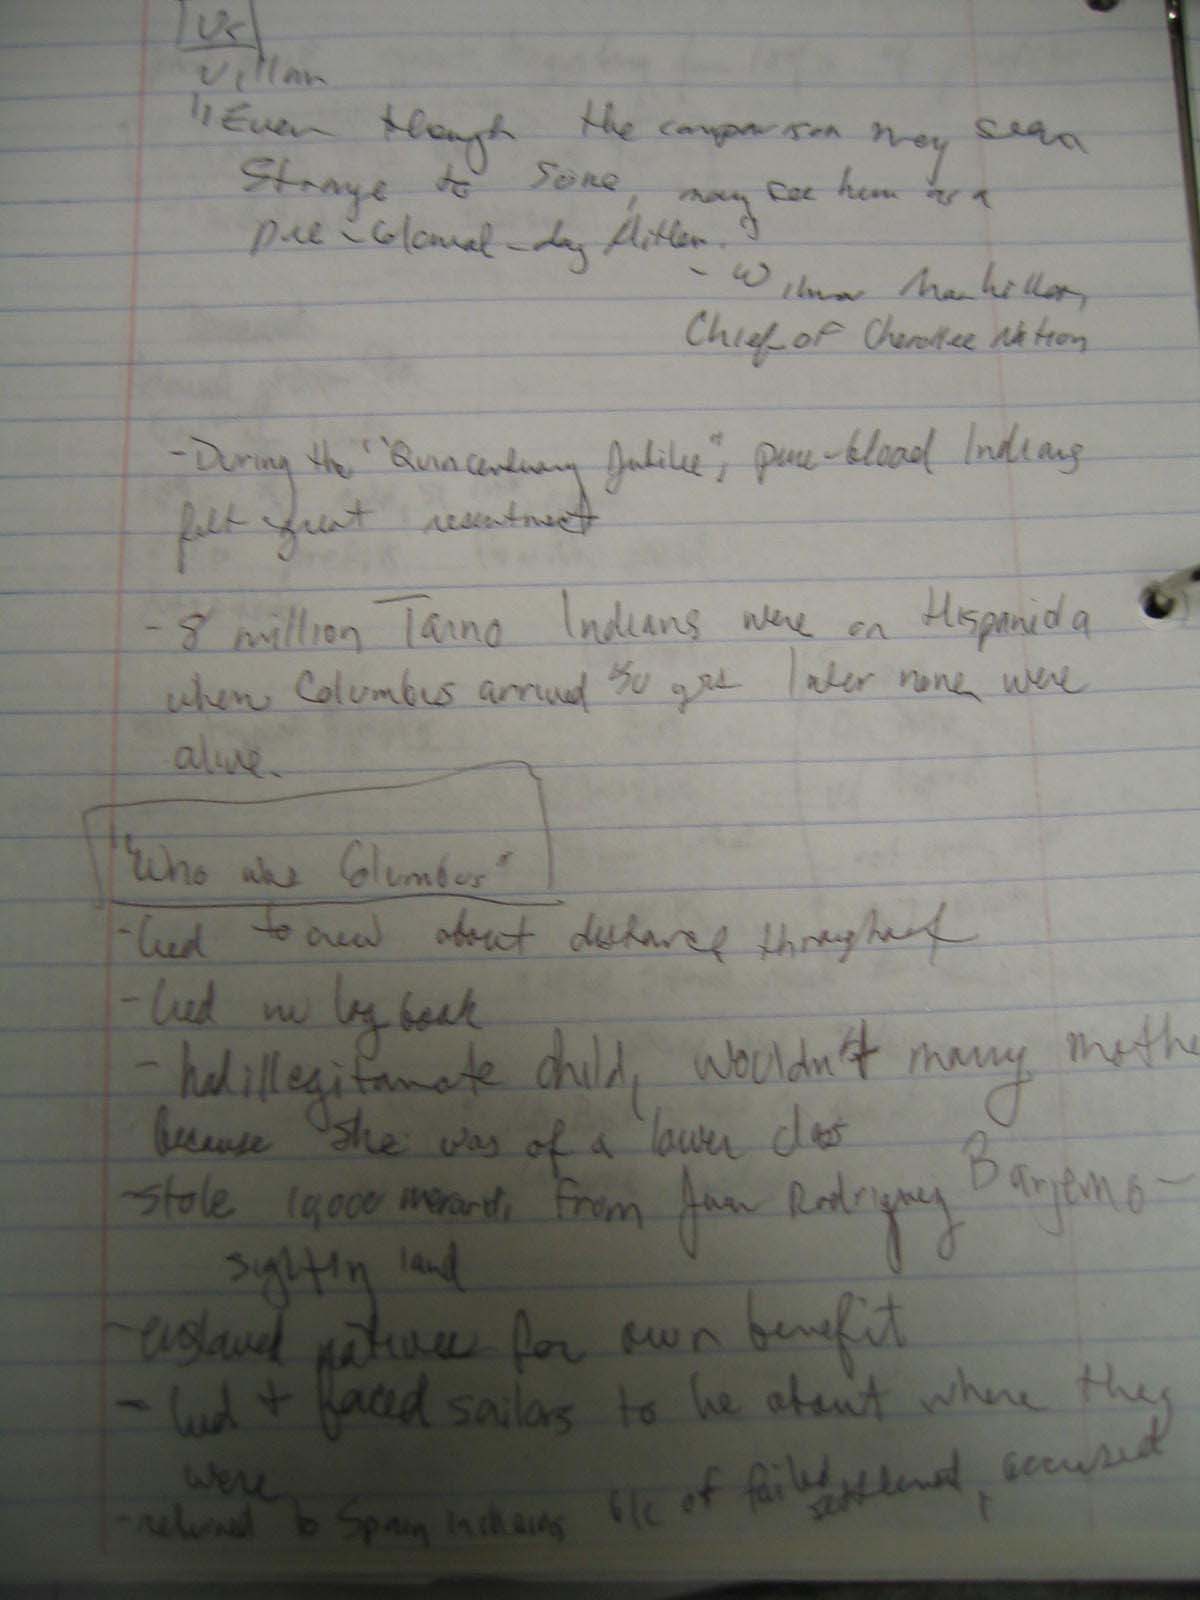 Vs
Villan
"Even though the comparison may seem
strange to some, many see him as a
pre-colonial-day Hitler.
- Wilma Mankiller,
Chief of Cherokee Nation
- During the "Quincentenary Jubilee", pure-blood Indians
felt great resentment
- 8 million Taino Indians were on Hispaniola
when Columbus arrived 50 yrs later none were
alive.
"Who was Columbus"
- lied to crew about distance throughout
- lied in log book
- had illegitamate child, wouldn't marry mothe
because she was of a lower class
- stole 10,000 from Juan Rodriguez Barjemo -
sighting land
- enslaved natives for own benefit
- lied + forced sailors to lie about where they
were
- returned to Spain in chains b/c of failed settlement, accused